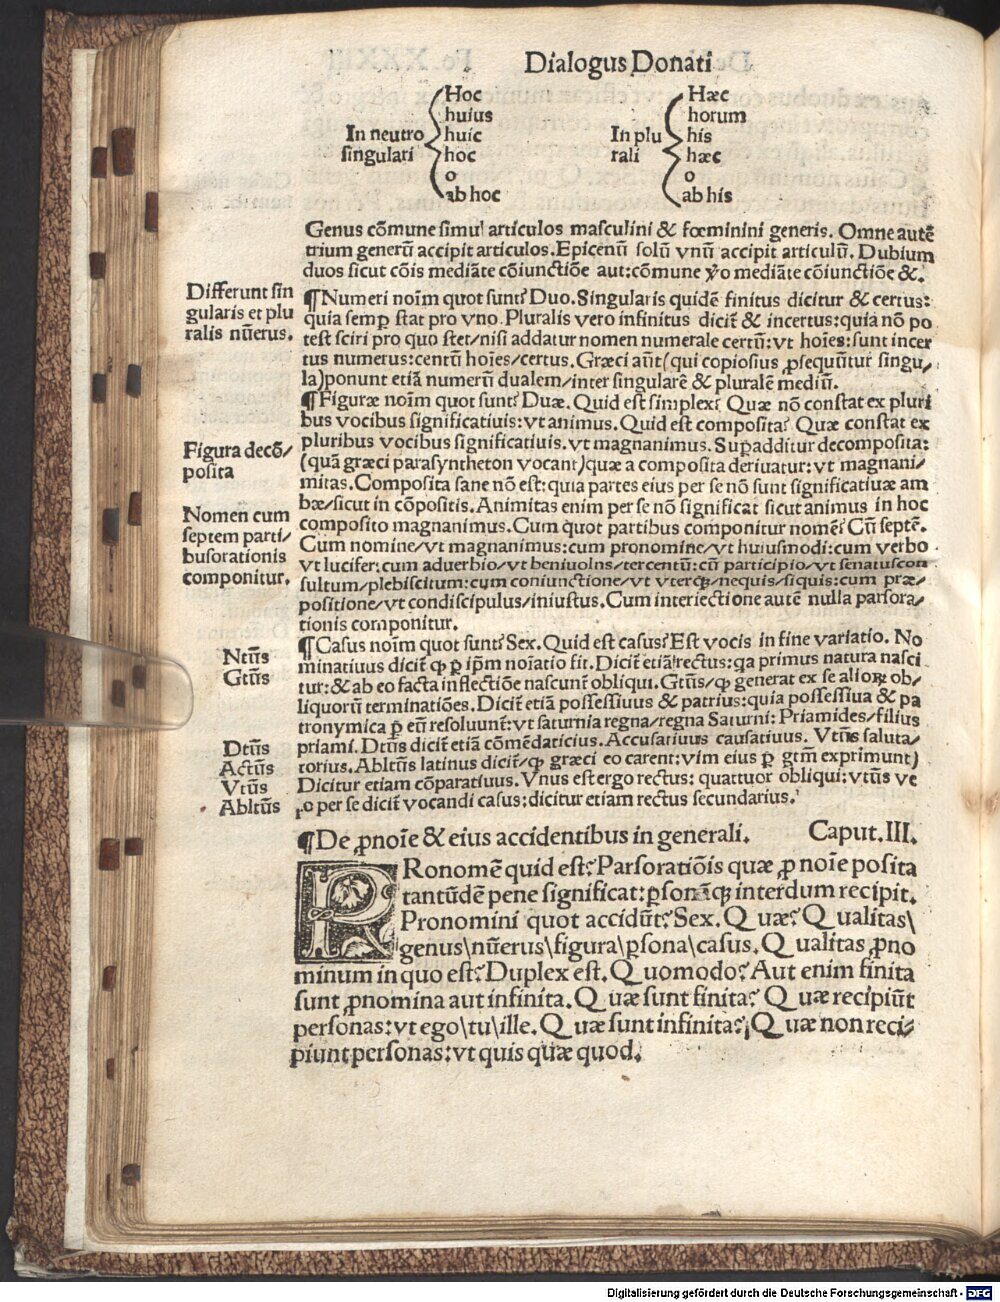 Dialogus Donati
In neutro
singulari
Hoc
huius
huic
hoc
o
ab hoc
In plu
rali
Hæc
horum
his
hæc
o
ab his
Genus cōmune simul articulos masculini & fœminini generis. Omne autē
trium generū accipit articulos. Epicenū solū vnū accipit articulū. Dubium
duos sicut cōis mediāte cōiunctiōe aut: cōmune ꝟo mediāte cōiunctiōe &.
Differunt sin
gularis et plu
ralis nūerus.
¶ Numeri noīm quot sunt? Duo. Singularis quidē finitus dicitur & certus:
quia semꝑ stat pro vno. Pluralis vero infinitus dicit̄ & incertus: quia nō po
test sciri pro quo stet/nisi addatur nomen numerale certū: vt hoīes: sunt incer
tus numerus: centū hoīes/certus. Græci aūt (qui copiosius ꝓsequūtur singu/
la) ponunt etiā numerū dualem/inter singularē & pluralē mediū.
¶ Figuræ noīm quot sunt? Duæ. Quid est simplex? Quæ nō constat ex pluri
bus vocibus significatiuis: vt animus. Quid est composita? Quæ constat ex
pluribus vocibus significatiuis. vt magnanimus. Supadditur decomposita:
(quā græci parasyntheton vocant) quæ a composita deriuatur: vt magnani/
mitas. Composita sane nō est: quia partes eius per se nō sunt significatiuæ am
bæ/sicut in cōpositis. Animitas enim per se nō significat sicut animus in hoc
composito magnanimus. Cum quot partibus componitur nomē? Cū septē.
Cum nomine/vt magnanimus: cum pronomine/vt huiusmodi: cum verbo
vt lucifer: cum aduerbio/vt beniuolus/tercentū: cū participio/vt senatuscon
sultum/plebiscitum: cum coniunctione/vt vterqꝫ/nequis/siquis: cum præ/
positione/vt condiscipulus/iniustus. Cum interiectione autē nulla parsora/
tionis componitur.
Figura decō/
posita
Nomen cum
septem parti/
busorationis
componitur.
¶ Casus noīm quot sunt? Sex. Quid est casus? Est vocis in fine variatio. No
minatiuus dicit̄ ꝙ ꝑ ip̄m noīatio fit. Dicit̄ etiā rectus: qa primus natura nasci
tur: & ab eo facta inflectiōe nascunt̄ obliqui. Gtūs/ꝙ generat ex se alioꝝ ob/
liquorū terminatiōes. Dicit̄ etiā possessiuus & patrius: quia possessiua & pa
tronymica ꝑ eū resoluunt̄: vt saturnia regna/regna Saturni: Priamides/filius
priami. Dtūs dicit̄ etiā cōmēdaticius. Accusatiuus causatiuus. Vtūs saluta/
torius. Abltūs latinus dicit̄/ꝙ græci eo carent: vim eius ꝑ gtm̄ exprimunt)
Dicitur etiam cōparatiuus. Vnus est ergo rectus: quattuor obliqui: vtūs ve
ro per se dicit̄ vocandi casus: dicitur etiam rectus secundarius.
Ntūs
Gtūs
Dtūs
Actūs
Vtūs
Abltūs
¶ De ꝓnoīe & eius accidentibus in generali. Caput. III.
PRonomē quid est? Parsoratiōis quæ ꝓ noīe posita
tantūdē pene significat: ꝑsonāqꝫ interdum recipit.
Pronomini quot accidūt? Sex. Quæ? Qualitas\
genus\nūerus\figura\ꝑsona\casus. Qualitas ꝓno
minum in quo est? Duplex est. Quomodo? Aut enim finita
sunt ꝓnomina aut infinita. Quæ sunt finita? Quæ recipiūt
personas: vt ego\tu\ille. Quæ sunt infinita? Quæ non reci/
piunt personas: vt quis quæ quod.
Digitalisierung gefördert durch die Deutsche Forschungsgemeinschaft - DFG